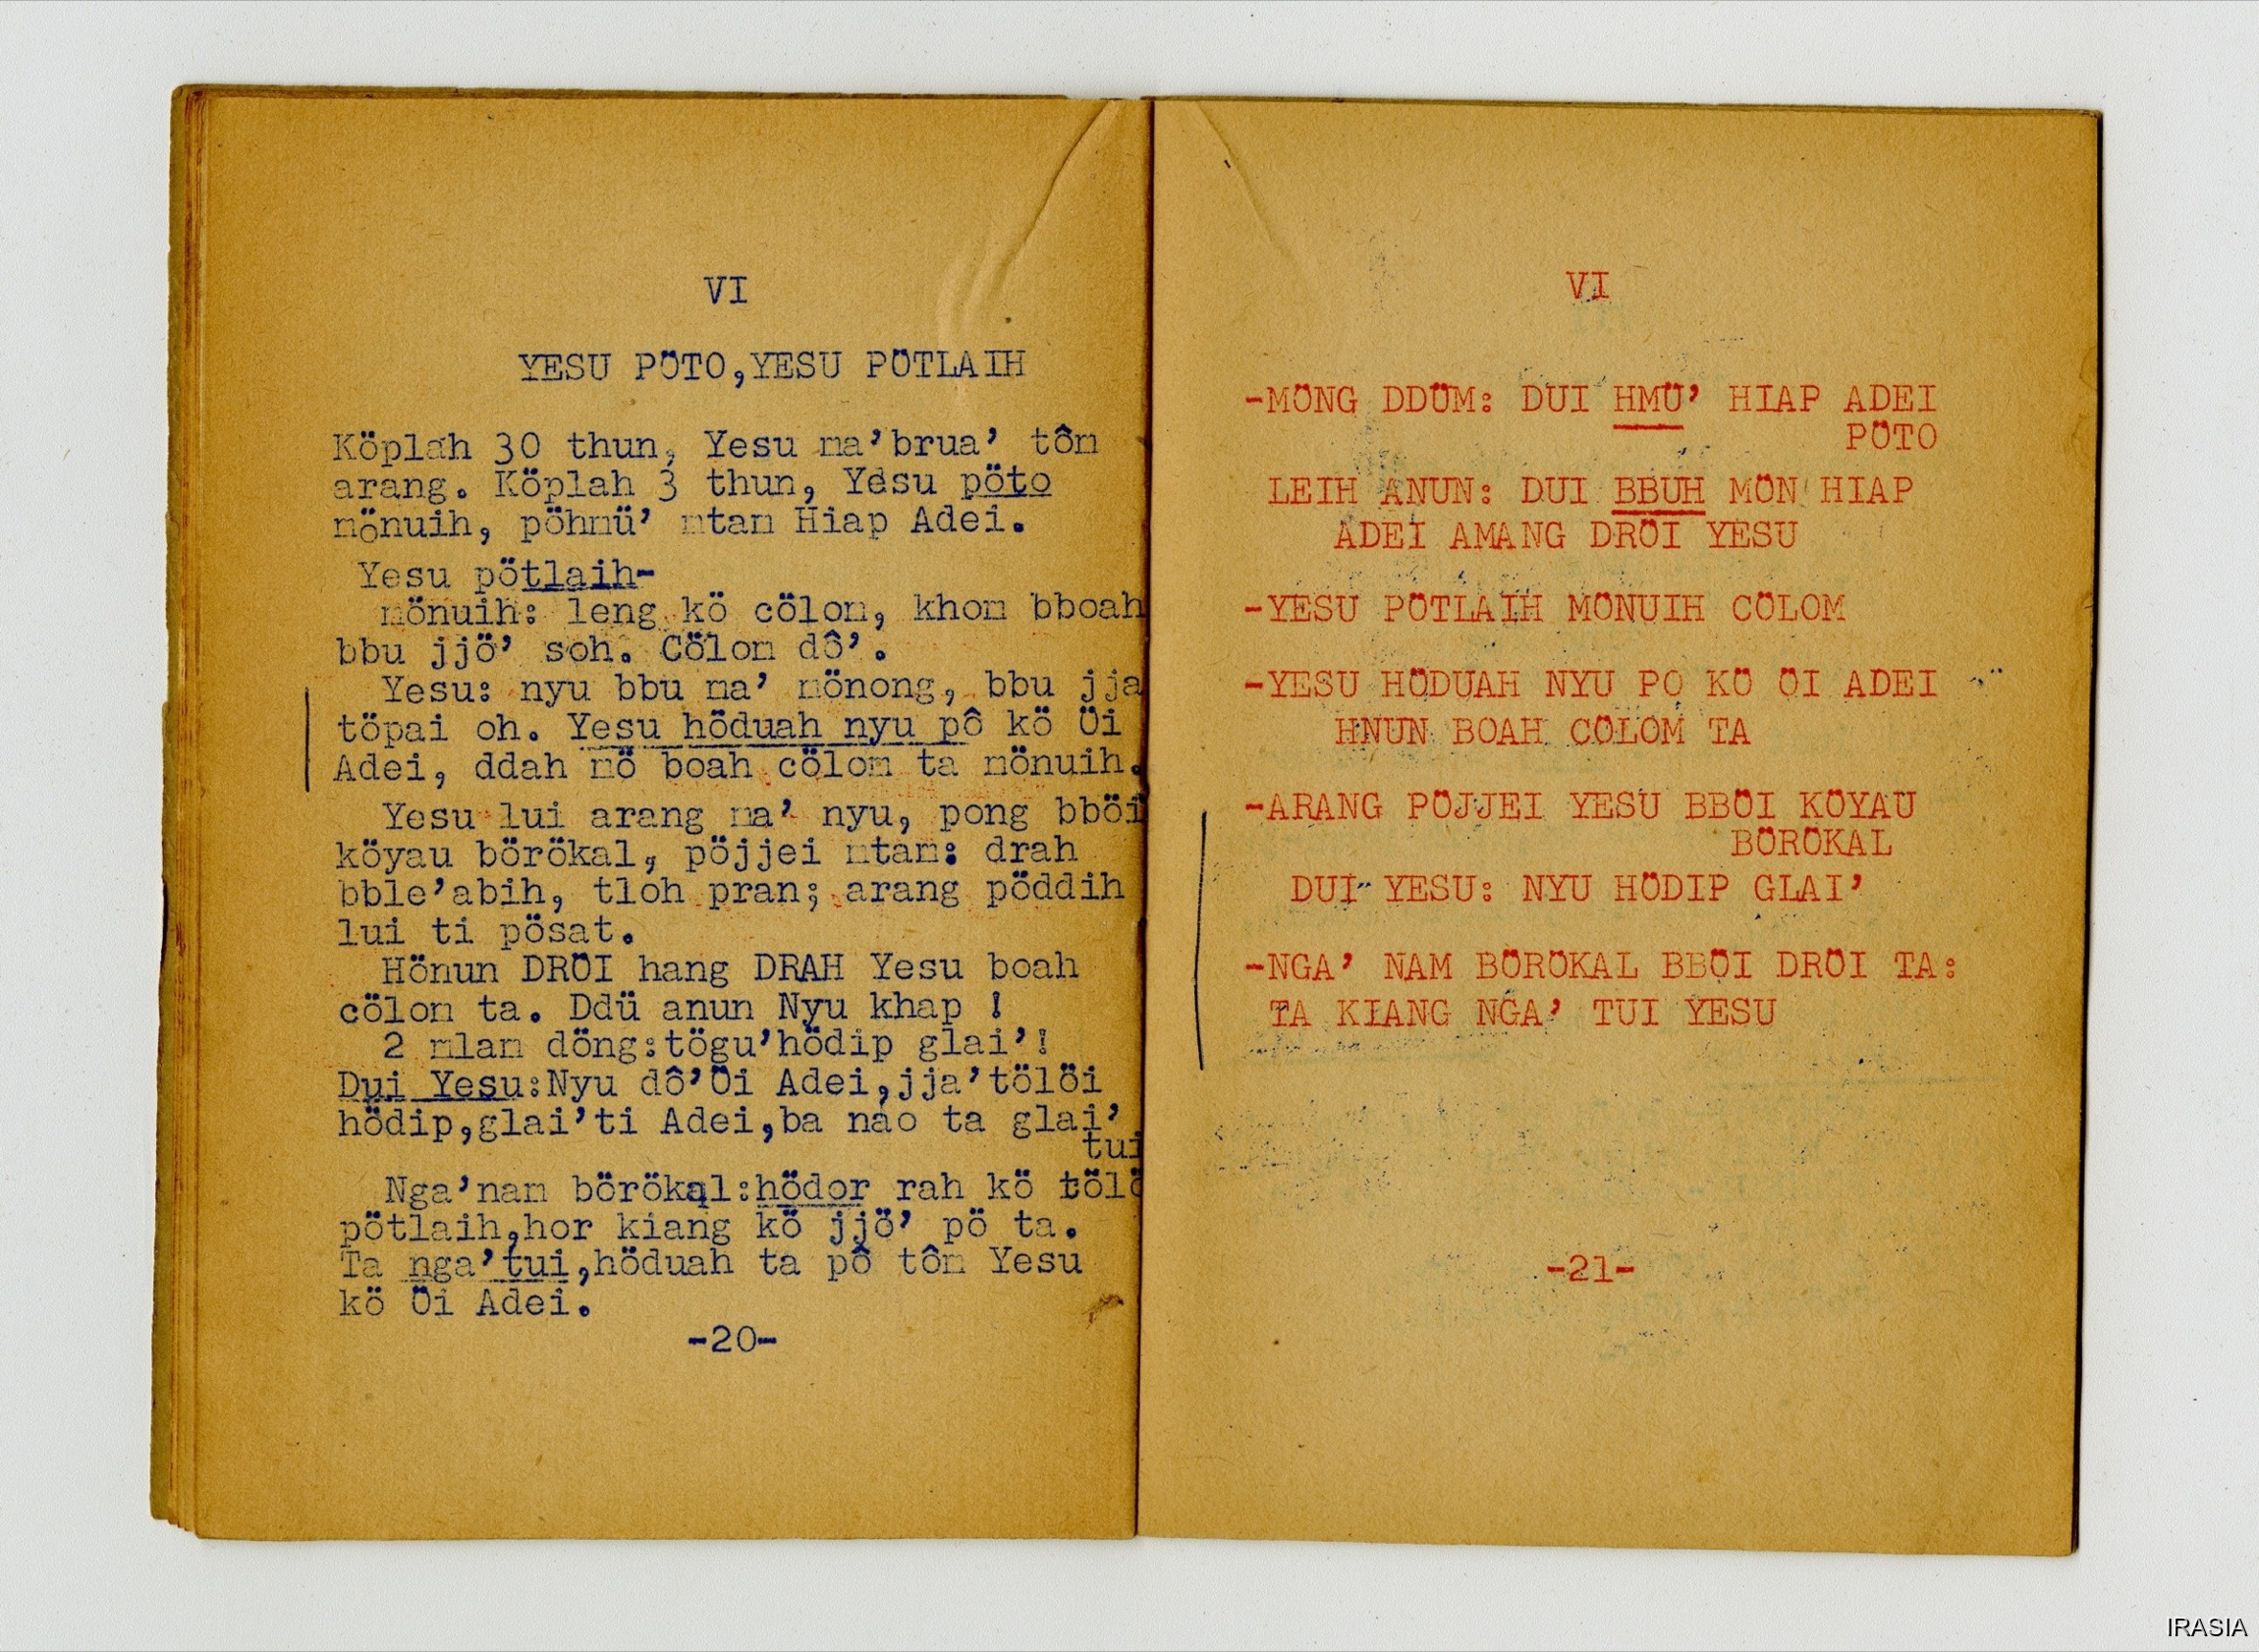 VI
YESU PÖTO,YESU PÖTLAIH
Köplah 30 thun, Yesu ma’brua’ tôm
arang. Köplah 3 thun, Yesu pöto
mönuih, pöhmü’ mtam Hiap Adei.
Yesu pötlaih-
mönuih: leng kö cölom, khom bboah
bbu jjö’ soh. Cölom dô’.
Yesu: nyu bbu ma’ mönong, bbu jja
töpai oh. Yesu höduah nyu pô kö Öi
Adei, ddah mö boah cölom ta mönuih.
Yesu lui arang ma’ nyu, pong bböi
köyau börökal, pöjjei mtam: drah
bble’abih, tloh pran; arang pöddih
lui ti pösat.
Hönun DRÖI hang DRAH Yesu boah
cölom ta. Ddü anun Nyu khap !
2 mlam döng:tögu’hödip glai’!
Dui Yesu:Nyu dô’Öi Adei,jja’tölöi
hödip,glai’ti Adei,ba nao ta glai’
tui
Nga’nam börökal:hödor rah kö tölö
pötlaih,hor kiang kö jjö’ pö ta.
Ta nga’tui,höduah ta pô tôm Yesu
kö Öi Adei.
-20-
VI
-MÖNG DDÜM: DUI HMÜ’ HIAP ADEI
PÖTO
LEIH ANUN: DUI BBUH MÖN HIAP
ADEI AMANG DRÖI YESU
-YESU PÖTLAIH MÖNUIH CÖLOM
-YESU HÖDUAH NYU PO KÖ ÖI ADEI
HNUN BOAH CÖLOM TA
-ARANG PÖJJEI YESU BBÖI KÖYAU
BÖRÖKAL
DUI YESU: NYU HÖDIP GLAI’
-NGA’ NAM BÖRÖKAL BBÖI DRÖI TA:
TA KIANG NGA’ TUI YESU
-21-
IRASIA